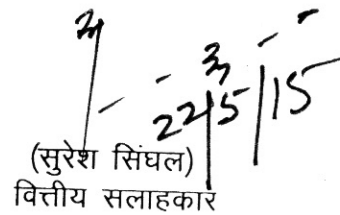 22/5/15
(सुरेश सिंघल)
वित्तीय सलाहकार